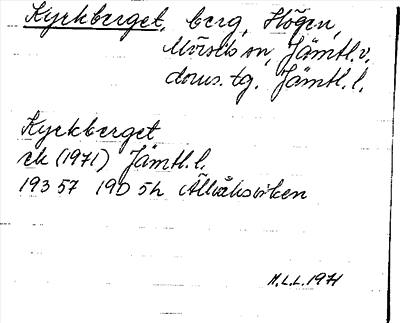 Kyrkberget, berg, Högen,
Mörsils sn, Jämtl.v.
doms. tg. Jämtl. l.
Kyrkberget
ek (1971) Jämtl. l.
193 57 19D 5h
M.L.L. 1971